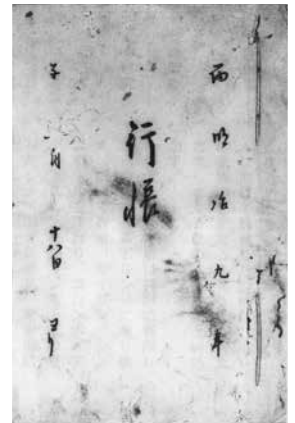 丙明治九年
行帳
子 月十八日ヨリ